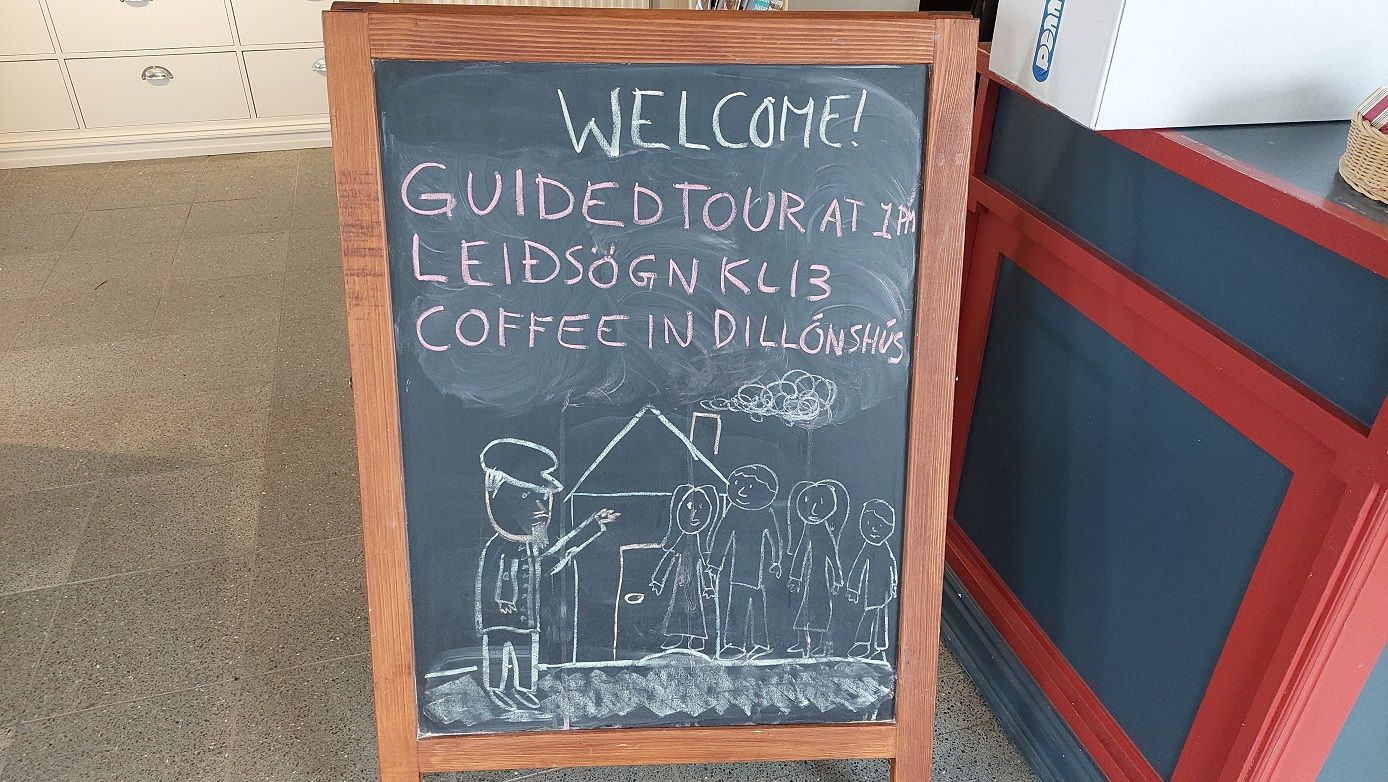 WELCOME!
GUIDED TOUR AT 1PM
LEIÐSÖGN KL 13
COFFEE IN DILLÓNSHÚS